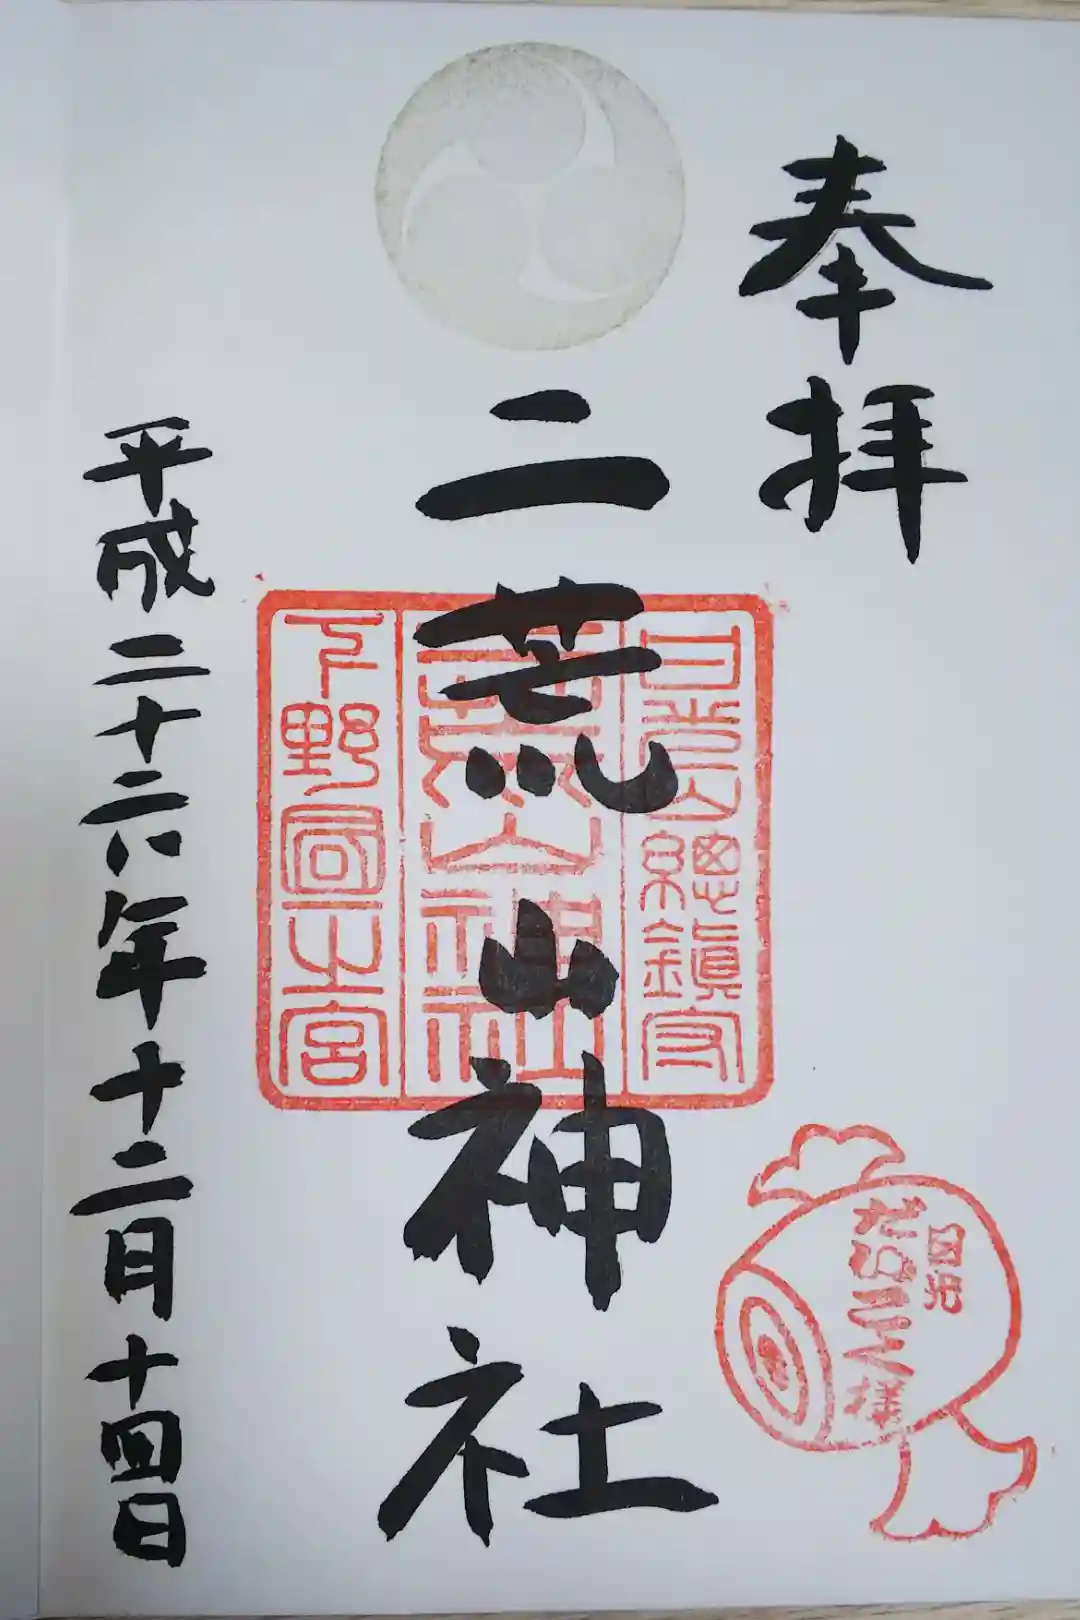 奉拝
日光山總鎮守
二荒山神社
二荒山神社
下野國一之宮
平成二十六年十二月十四日
日光
だいこく様